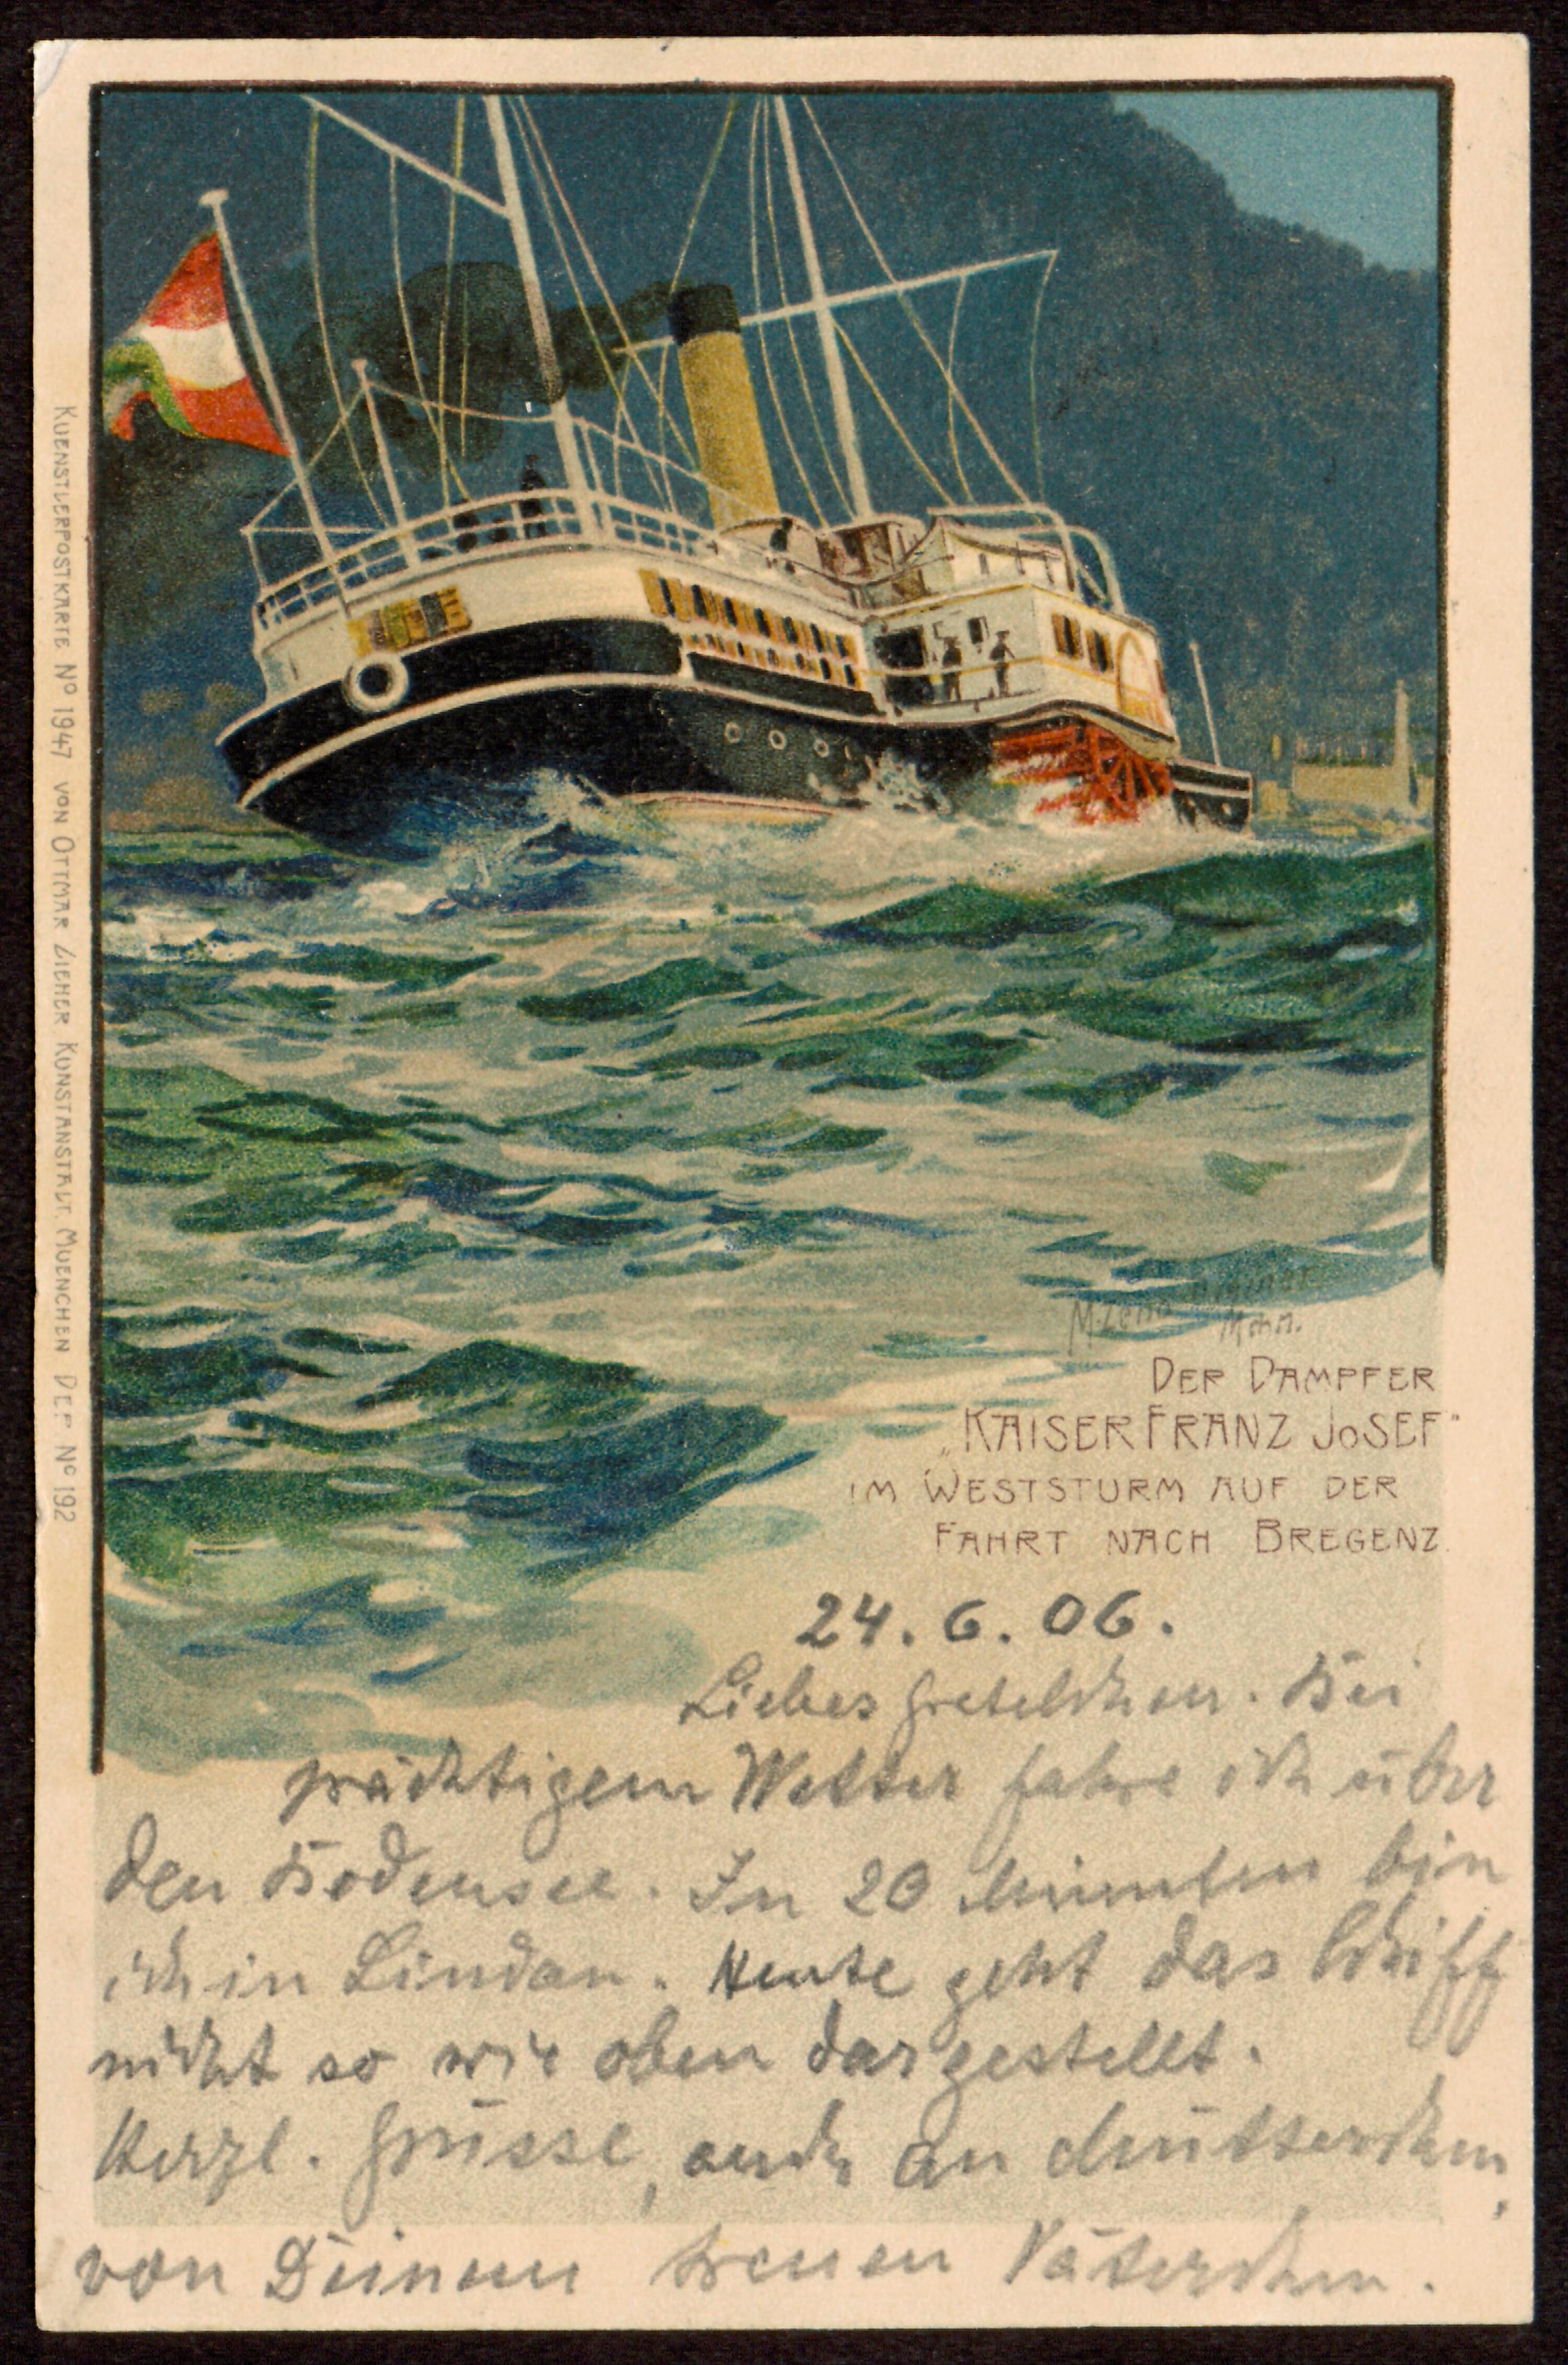 KUENSTLERPOSTKARTE No 1947 VON OTTMAR ZIEHER KUNSTANSTALT, MUENCHEN DEP No 192
M. Zeno Diemer
Mchn.
DER DAMPFER
„KAISER FRANZ JOSEF"
IM WESTSTURM AUF DER
FAHRT NACH BREGENZ.
24. 6. 06.
Liebes Gretelchen. Bei
prächtigem Wetter fahre ich über
den Bodensee. In 20 Minuten bin
ich in Lindau. Heute geht das Schiff
nicht so wie oben dargestellt.
Herzl. Grüsse, auch an Mütterchen,
von Deinem treuen Väterchen.